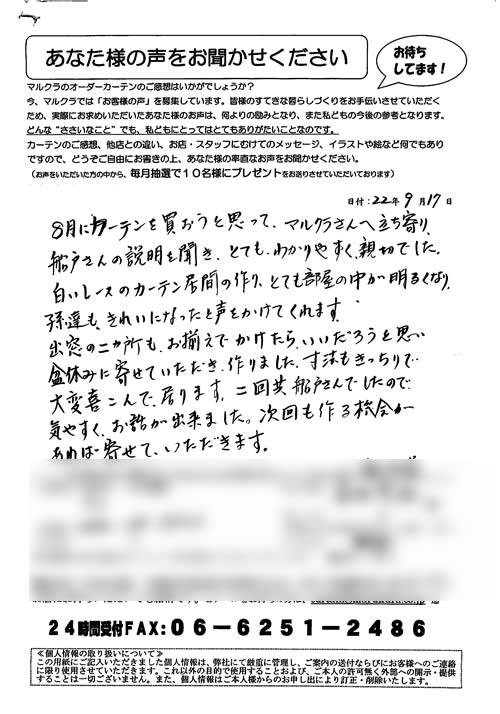 あなた様の声をお聞かせください
お待ち
してます!
マルクラのオーダーカーテンのご感想はいかがでしょうか?
今、マルクラでは「お客様の声」を募集しています。皆様のすてきな暮らしづくりをお手伝いさせていただく
ため、実際にお求めいただいたあなた様のお声は、何よりの励みとなり、また私どもの今後の参考となります。
どんな“ささいなこと”でも、私どもにとってはとてもありがたいことなのです。
カーテンのご感想、他店との違い、お店・スタッフにむけてのメッセージ、イラストや絵など何でもあり
ですので、どうぞご自由にお書きの上、あなた様の率直なお声をお聞かせください。
(お声をいただいた方の中から、毎月抽選で10名様にプレゼントをお送りさせていただいております)
日付:22年 9月17日
8月にカーテンを買おうと思って、マルクラさんへ立ち寄り、
船戸さんの説明を聞き、とても、わかりやすく、親切でした。
白いレースのカーテン居間の作り、とても部屋の中が明るくなり、
孫達も、きれいになったと声をかけてくれます。
出窓の二カ所も、お揃えでかけたら、いいだろうと思い
盆休みに寄せていただき、作りました、寸法もきっちりで
大変喜こんで、居ります。二回共船戸さんでしたので
気やすく、お話が出来ました。次回も作る機会が
あれば寄せて、いただきます。
24時間受付FAX:06-6251-2486
≪個人情報の取り扱いについて≫
この用紙にご記入いただきました個人情報は、弊社にて厳重に管理し、ご案内の送付ならびにお客様へのご連絡
に限り使用させていただきます。これ以外の目的で使用することおよび、ご本人の許可無く外部への開示・提供
することは一切ございません。また、個人情報はご本人様からのお申し出により訂正・削除いたします。